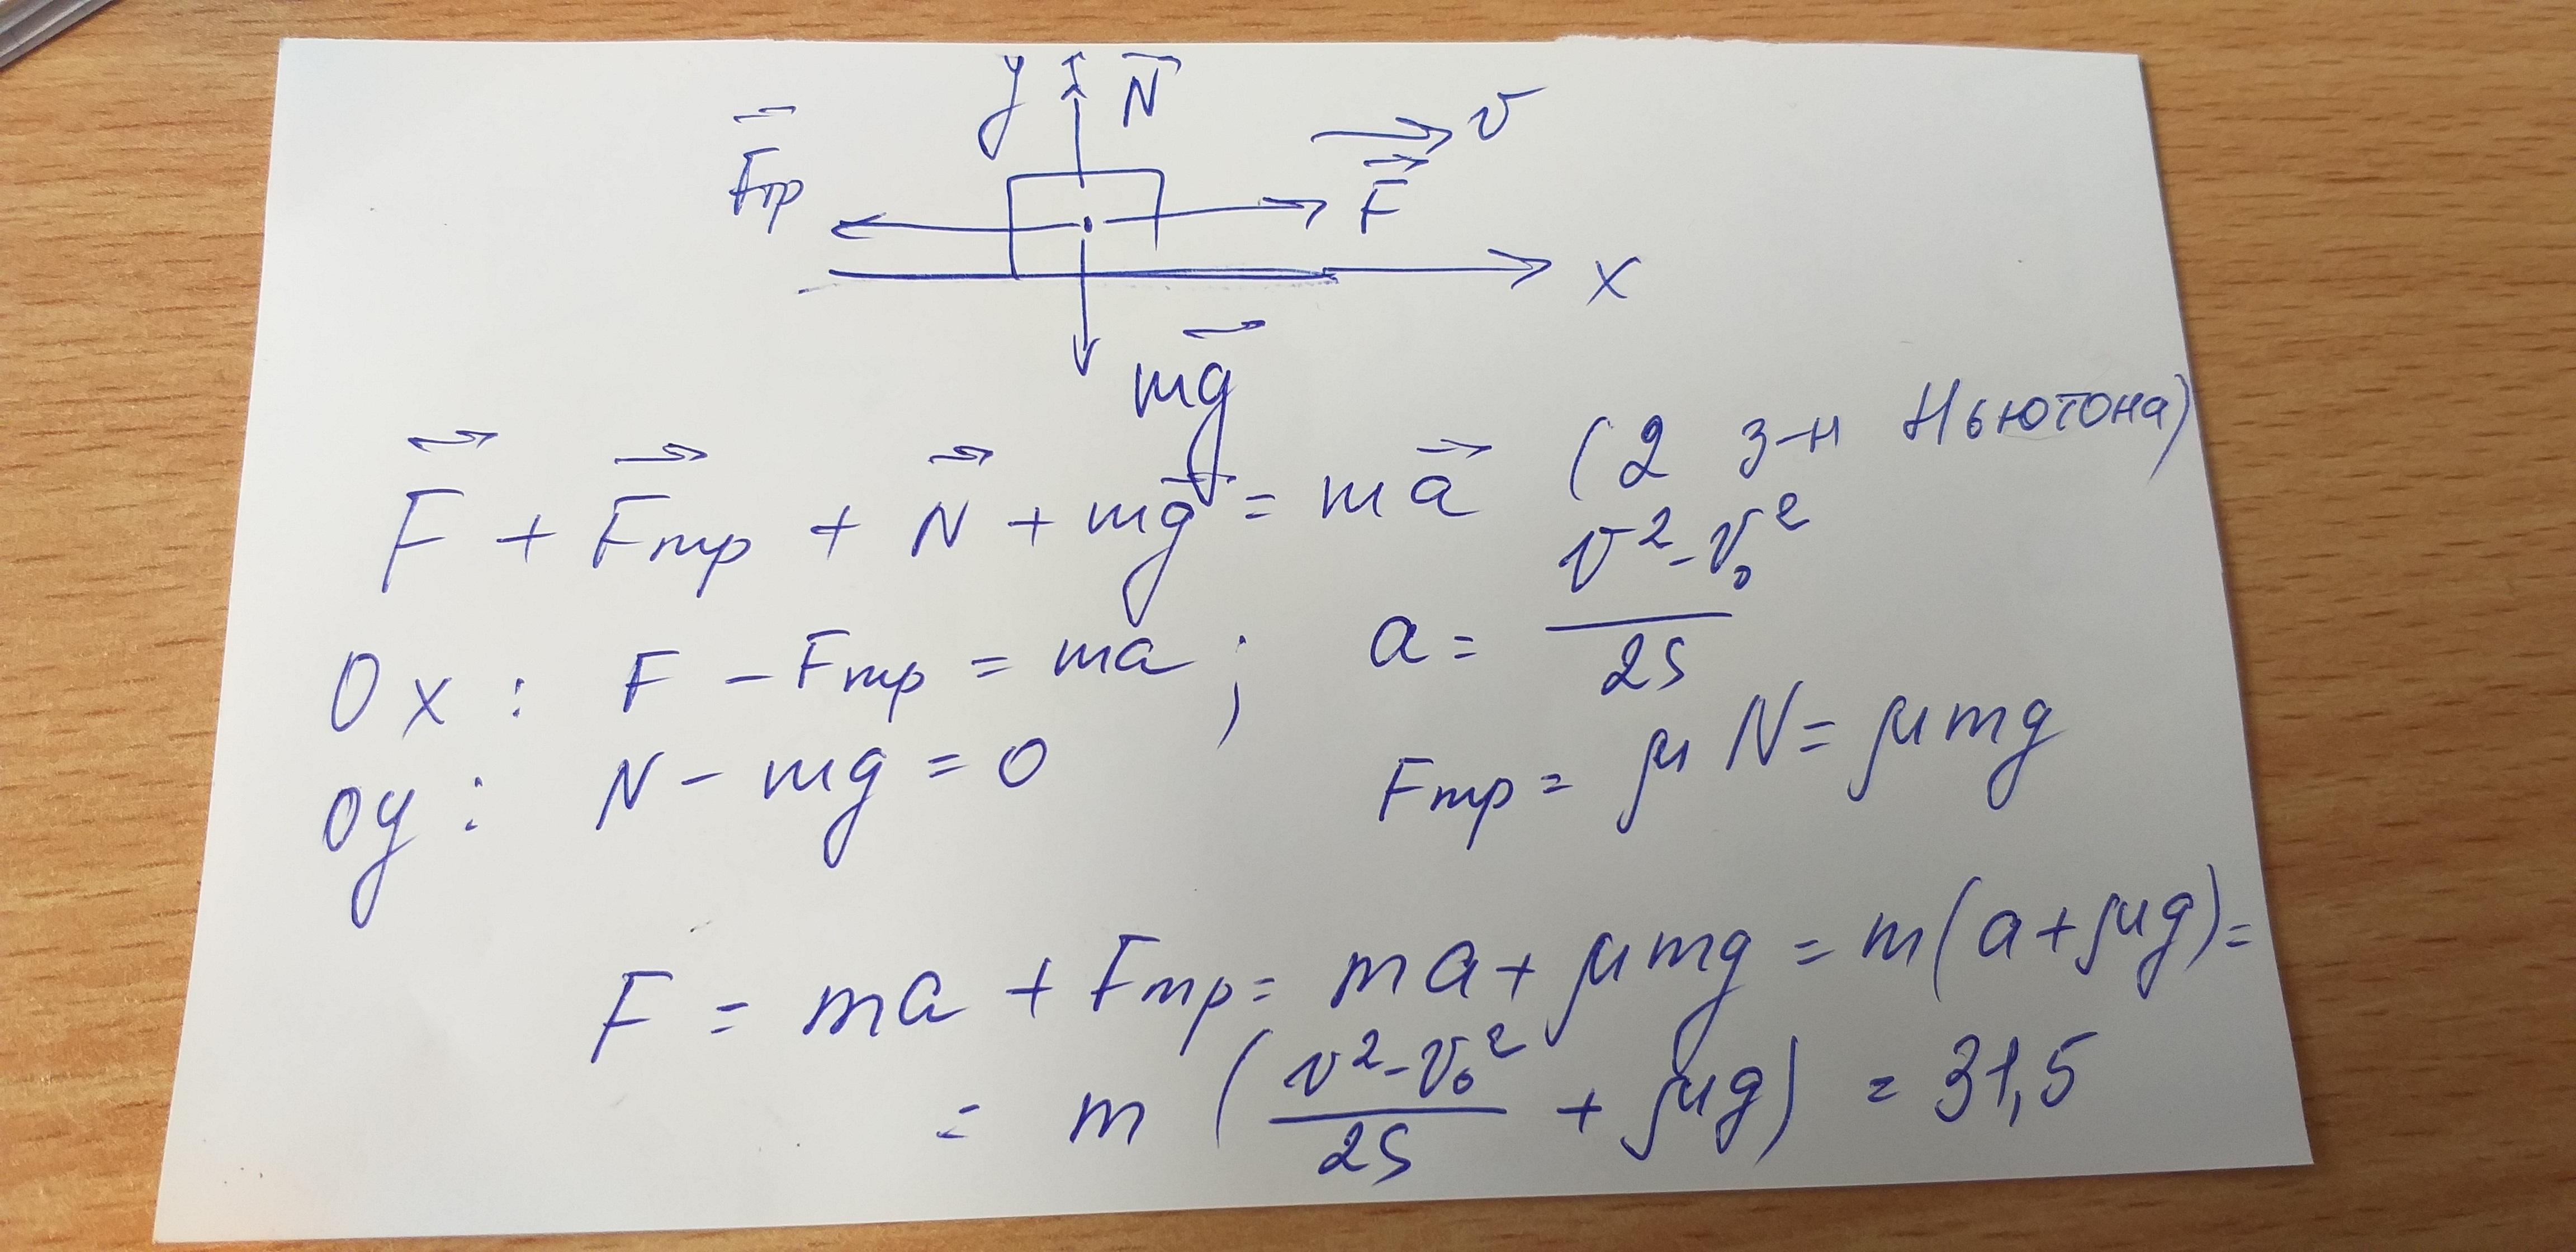 y N⃗
F⃗тр v
F⃗
x
mg⃗
F⃗ + F⃗тр + N⃗ + mg⃗ = ma⃗ (2 з-н Ньютона)
Ox : F - Fтр = ma ; a = (v² - v₀²)/2S
Oy : N - mg = 0 Fтр = μN = μmg
F = ma + Fтр = ma + μmg = m(a + μg) =
= m ((v² - v₀²)/2S + μg) = 31,5